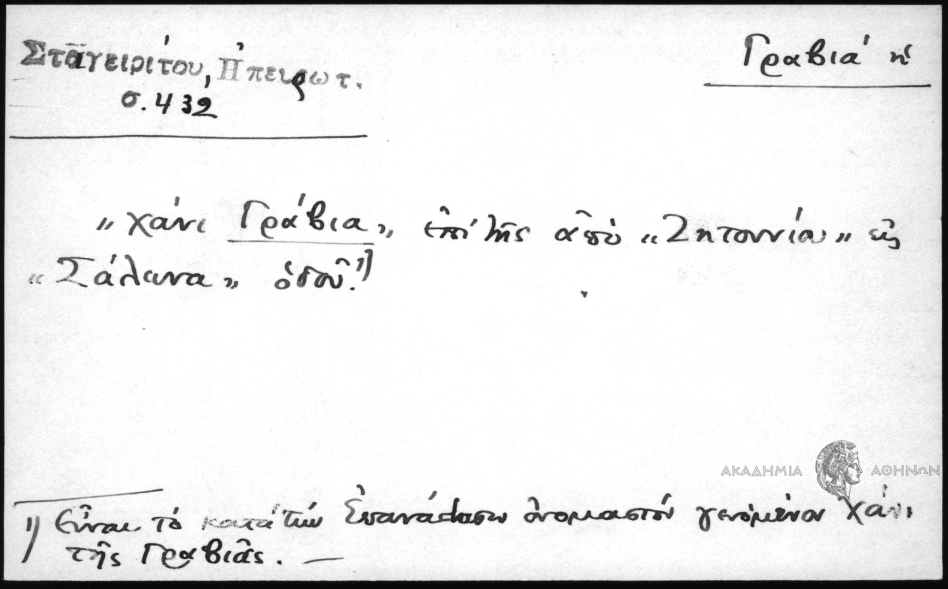 Σταγειρίτου, Ἠπειρωτ.
σ. 432
Γραβιά ἡ
„ χάνι Γράβια„ ἐπὶ τῆς ἀπὸ „Ζητουνίου„ εἰς
„Σάλωνα„ ὁδοῦ.¹⁾
ΑΚΑΔΗΜΙΑ ΑΘΗΝΩΝ
1) Εἶναι τὸ κατὰ τὴν Ἐπανάστασιν ὀνομαστὸν γενόμενον Χάνι
τῆς Γραβιᾶς. —